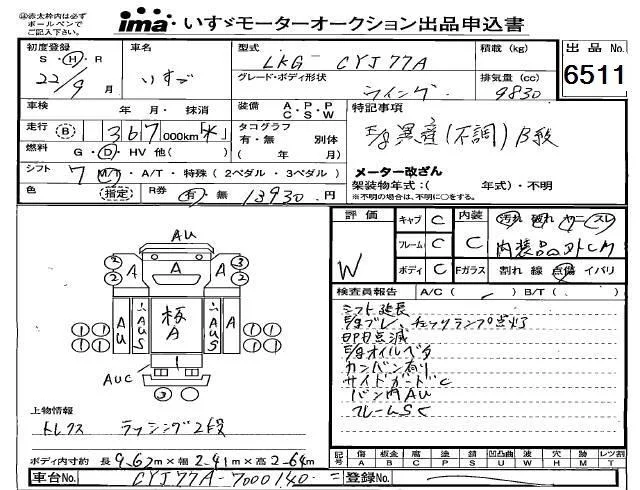 ㊟赤太枠内は必ず
ボールペンで
ご記入下さい。
ima・いすゞモーターオークション出品申込書
初度登録
S・H・R
22/9 月
車名
いすゞ
型式
LKG-CYJ77A
グレード・ボディ形状
ウイング
積載 (kg)
排気量 (cc)
9830
出品 No.
6511
車検 年・月・抹消
走行 B 1367000km
燃料 G・D・HV 他( )
シフト 7 M/T・A/T・特殊(2ペダル・3ペダル)
色 (指定)
R券 有・無 13930 円
装備 A・P・P
C・S・W
タコグラフ 別体
有・無
( 年 月)
特記事項
E/g異音(不調) B級
メーター改ざん
架装物年式:( 年式)・不明
※不明の場合は、不明に○をする。
評価
W
キャブ C
フレーム C
ボディ C
内装 C
Fガラス
汚れ 破れ ヤニ スレ
割れ 線 点傷 イバリ
検査員報告 A/C( ) B/T( . )
シフト延長
E/gブレ、チェックランプ点灯
E/gオイルベタ
カンバン有り
サイドガードC
バン内AU
フレームSC
AU
2 A A A 3
2 2
AU AUS 板A AUS A
1 1 1 1
1 1 1 1
AUC
3
上物情報
トレクス ラッシング2段
ボディ内寸約 長9.62m×幅2.41m×高2.64m
記号 傷A 板金B 腐C 塗P 錆S 凹凸曲U W 穴H 跡M レツ割T
車台No. CYJ77A-7000140 =
登録No.